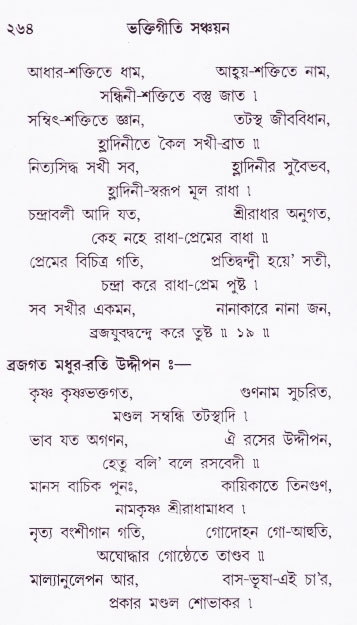 ২৬৪ ভক্তিগীতি সঞ্চয়ন
আধার-শক্তিতে ধাম, আহ্বয়-শক্তিতে নাম,
সন্ধিনী-শক্তিতে বস্তু জাত ।
সম্বিৎ-শক্তিতে জ্ঞান, তটস্থ জীববিধান,
হ্লাদিনীতে কৈল সখী-ব্রাত ॥
নিত্যসিদ্ধ সখী সব, হ্লাদিনীর সুবৈভব,
হ্লাদিনী-স্বরূপ মূল রাধা ।
চন্দ্রাবলী আদি যত, শ্রীরাধার অনুগত,
কেহ নহে রাধা-প্রেমের বাধা ॥
প্রেমের বিচিত্র গতি, প্রতিদ্বন্দ্বী হয়ে' সতী,
চন্দ্রা করে রাধা-প্রেম পুষ্ট ।
সব সখীর একমন, নানাকারে নানা জন,
ব্রজযুবদ্বন্দ্বে করে তুষ্ট ॥ ১৯ ॥
ব্রজগত মধুর-রতি উদ্দীপন ঃ—
কৃষ্ণ কৃষ্ণভক্তগত, গুণনাম সুচরিত,
মণ্ডল সম্বন্ধি তটস্থাদি ।
ভাব যত অগণন, ঐ রসের উদ্দীপন,
হেতু বলি' বলে রসবেদী ॥
মানস বাচিক পুনঃ, কায়িকাতে তিনগুণ,
নামকৃষ্ণ শ্রীরাধামাধব ।
নৃত্য বংশীগান গতি, গোদোহন গো-আহুতি,
অঘোদ্ধার গোষ্ঠেতে তাণ্ডব ॥
মাল্যানুলেপন আর, বাস-ভূষা-এই চা'র,
প্রকার মণ্ডল শোভাকর ।